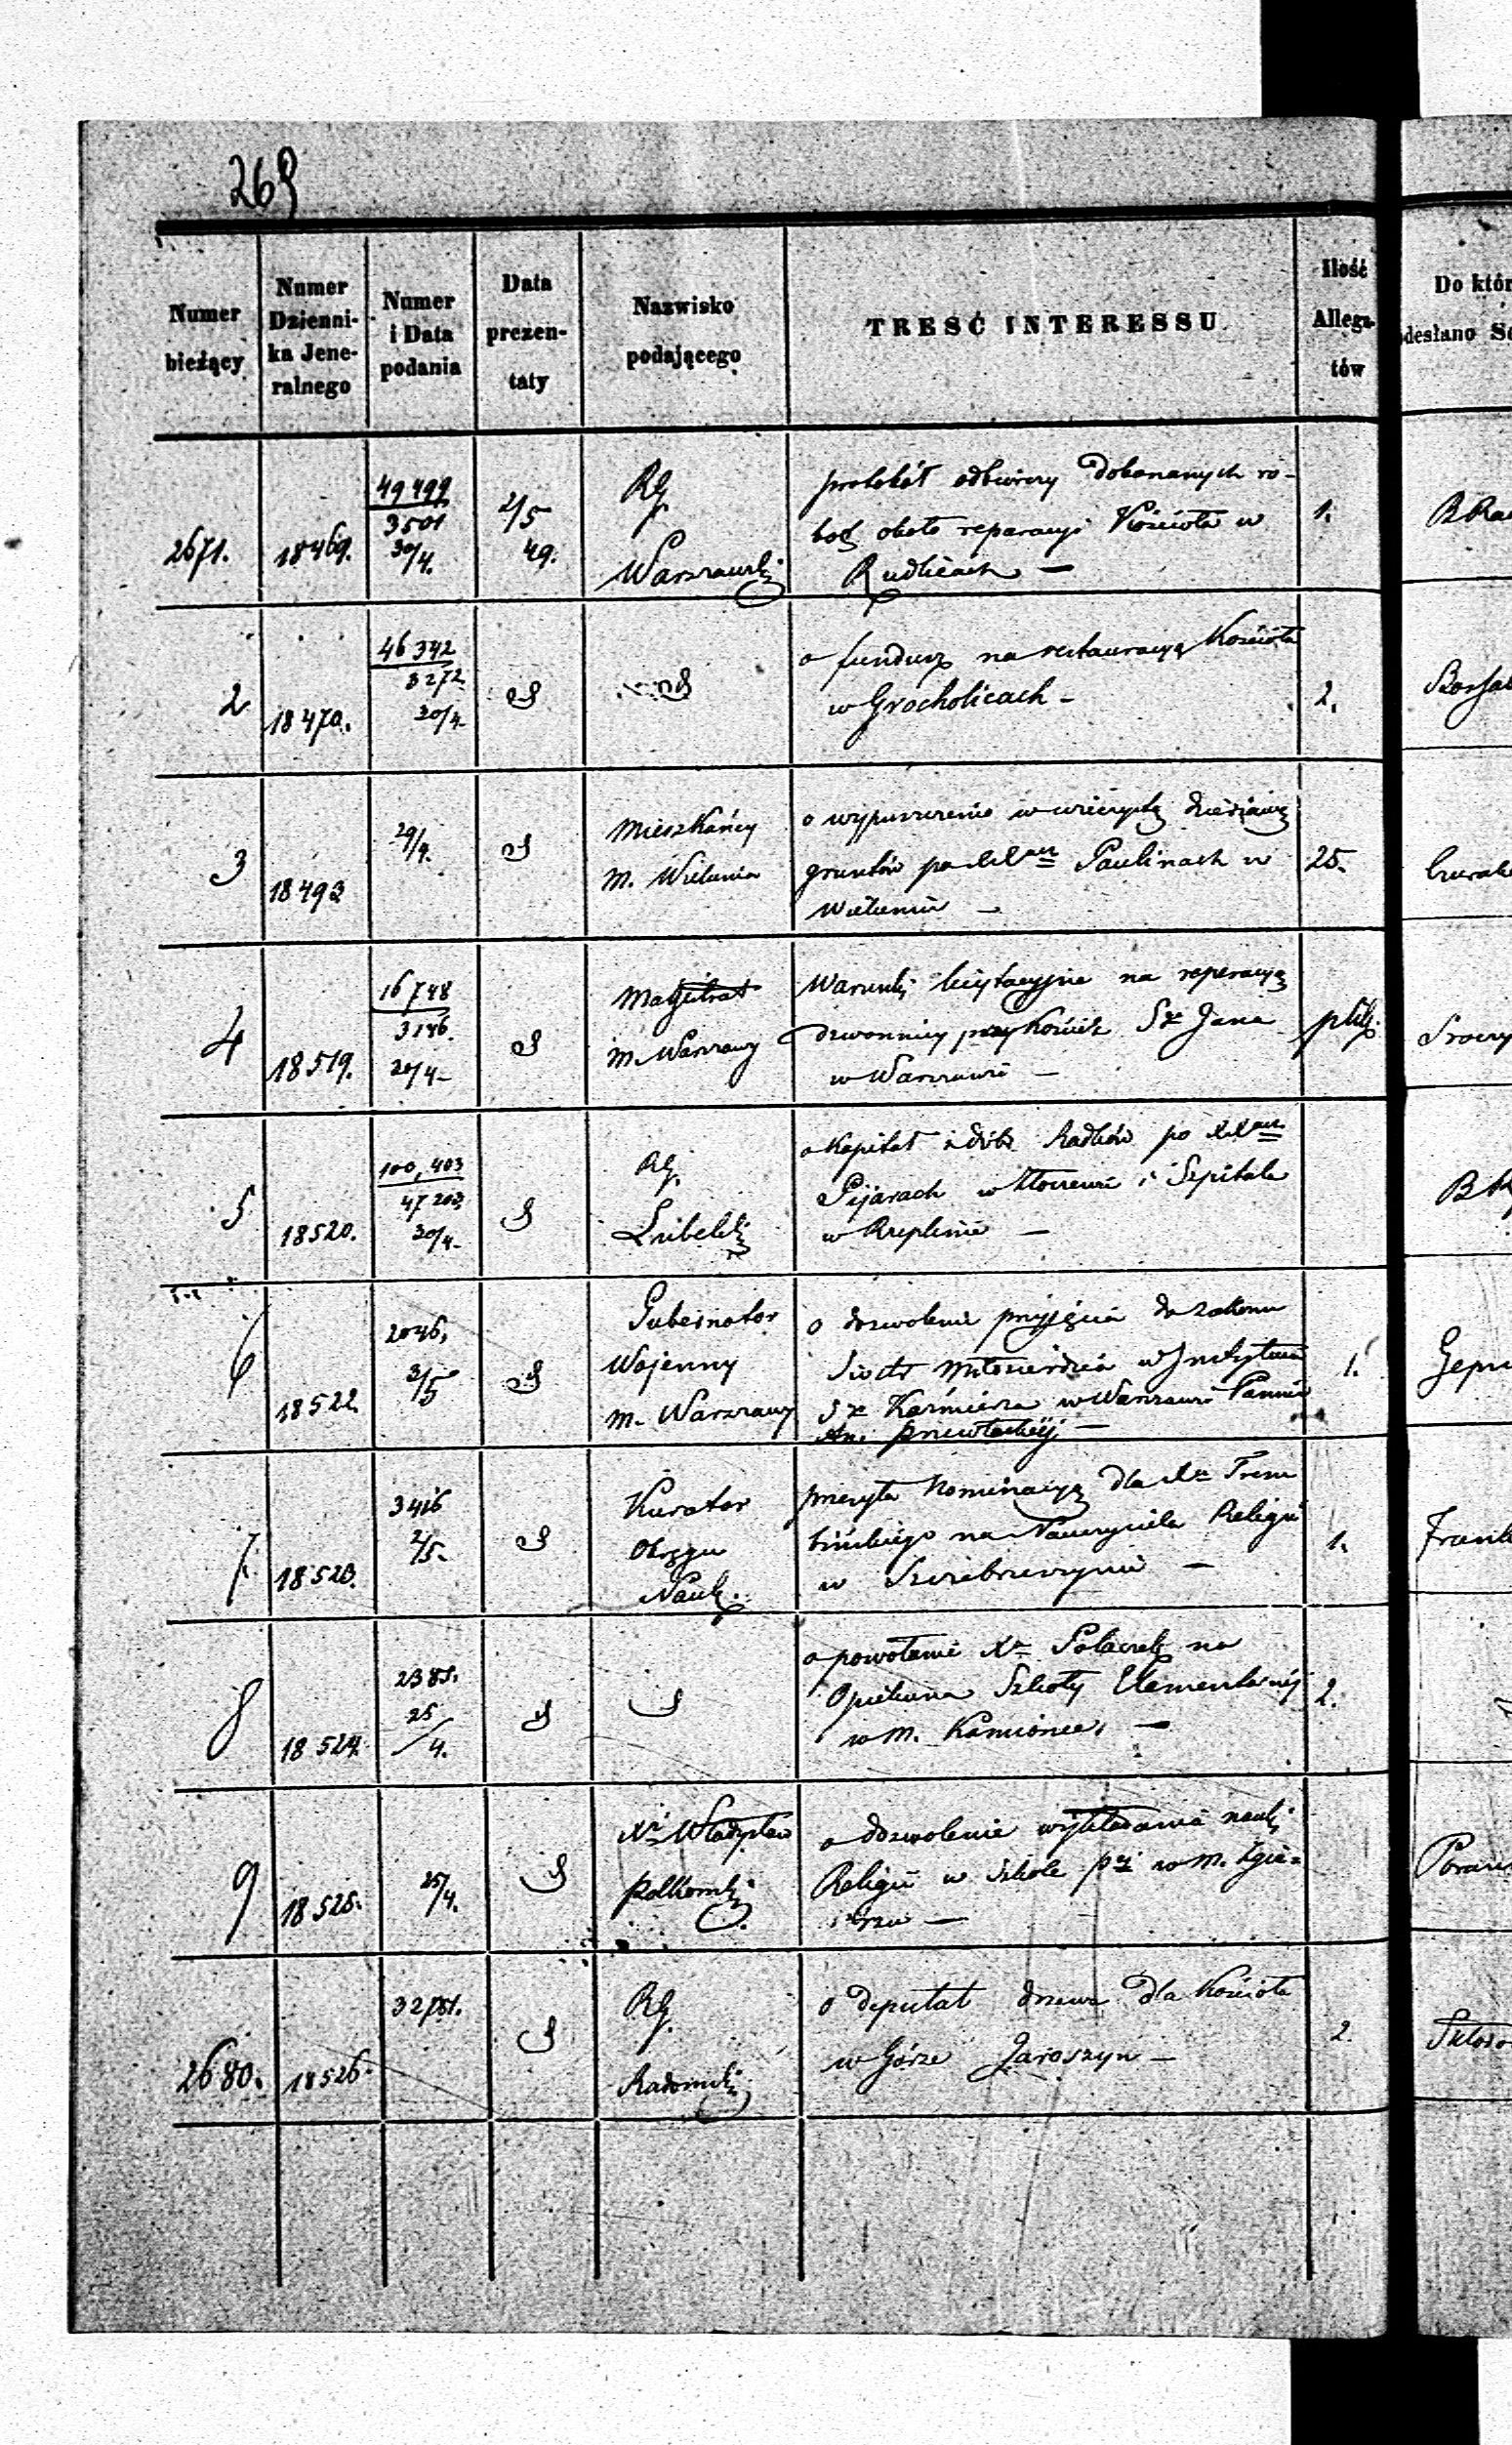 269
Numer bieżący
Numer Dzienni-ka Jene-ralnego
Numer i Data podania
Data prezen-taty
Nazwisko podającego
TREŚĆ INTERESSU
Ilość Allega-tów
Do któr
desłano
2671.
18469.
49499
3501
30/4.
2/5
49.
RG.
Warszawski
protokół odbiorczy dokonanych ro-
bot około reparacyi Kościoła w
Rudlicach —
1.
2
18470.
46342
3272
30/4
o fundusz na restauracyą Kościoła
w Grocholicach —
2.
3
18493
29/4.
Mieszkańcy
m. Wielunia
o wypuszczenie w wieczystą dzierżawę
gruntów po XX Paulinach w
Wieluniu —
25.
4
18519.
16748
3146.
20/4
Magistrat
m. Warszawy
Warunki licytacyjne na reperacyą
dzwonnicy przy Kościele Sgo Jana
w Warszawie —
plik.
5
18520.
100,403
47203
30/4
RG.
Lubelski
o Kapitał z dóbr Radków po XX
Pijarach w i Szpitala
w —
6
18522.
2046,
2/5
Gubernator
Wojenny
m. Warszawy
o dozwolenie przyjęcia do zakonu
Siostr Miłosierdzia w Instytucie
Sgo Kazmierza w Warszawie Pannie
An. —
1.
7.
18523.
3416
2/5.
Kurator
Okręgu
Nauk.
przesyła Nominacyą dla Xa Trem
bińskiego na Nauczyciela Religii
w Szczebrzeszynie —
1.
8
18524.
2385.
25
/4.
o powołanie Xa Polaczek na
Opiekuna Szkoły Elementarnéj
w m. Kamionce, —
2.
9
18525.
25/4.
X. Władysław
o dozwolenie wykładania nauki
Religii w szkole w m. Zgie-
rzu —
2680.
18526.
RG.
Radomski
o deputat drzewa dla Kościoła
w Górze Jaroszyn —
2